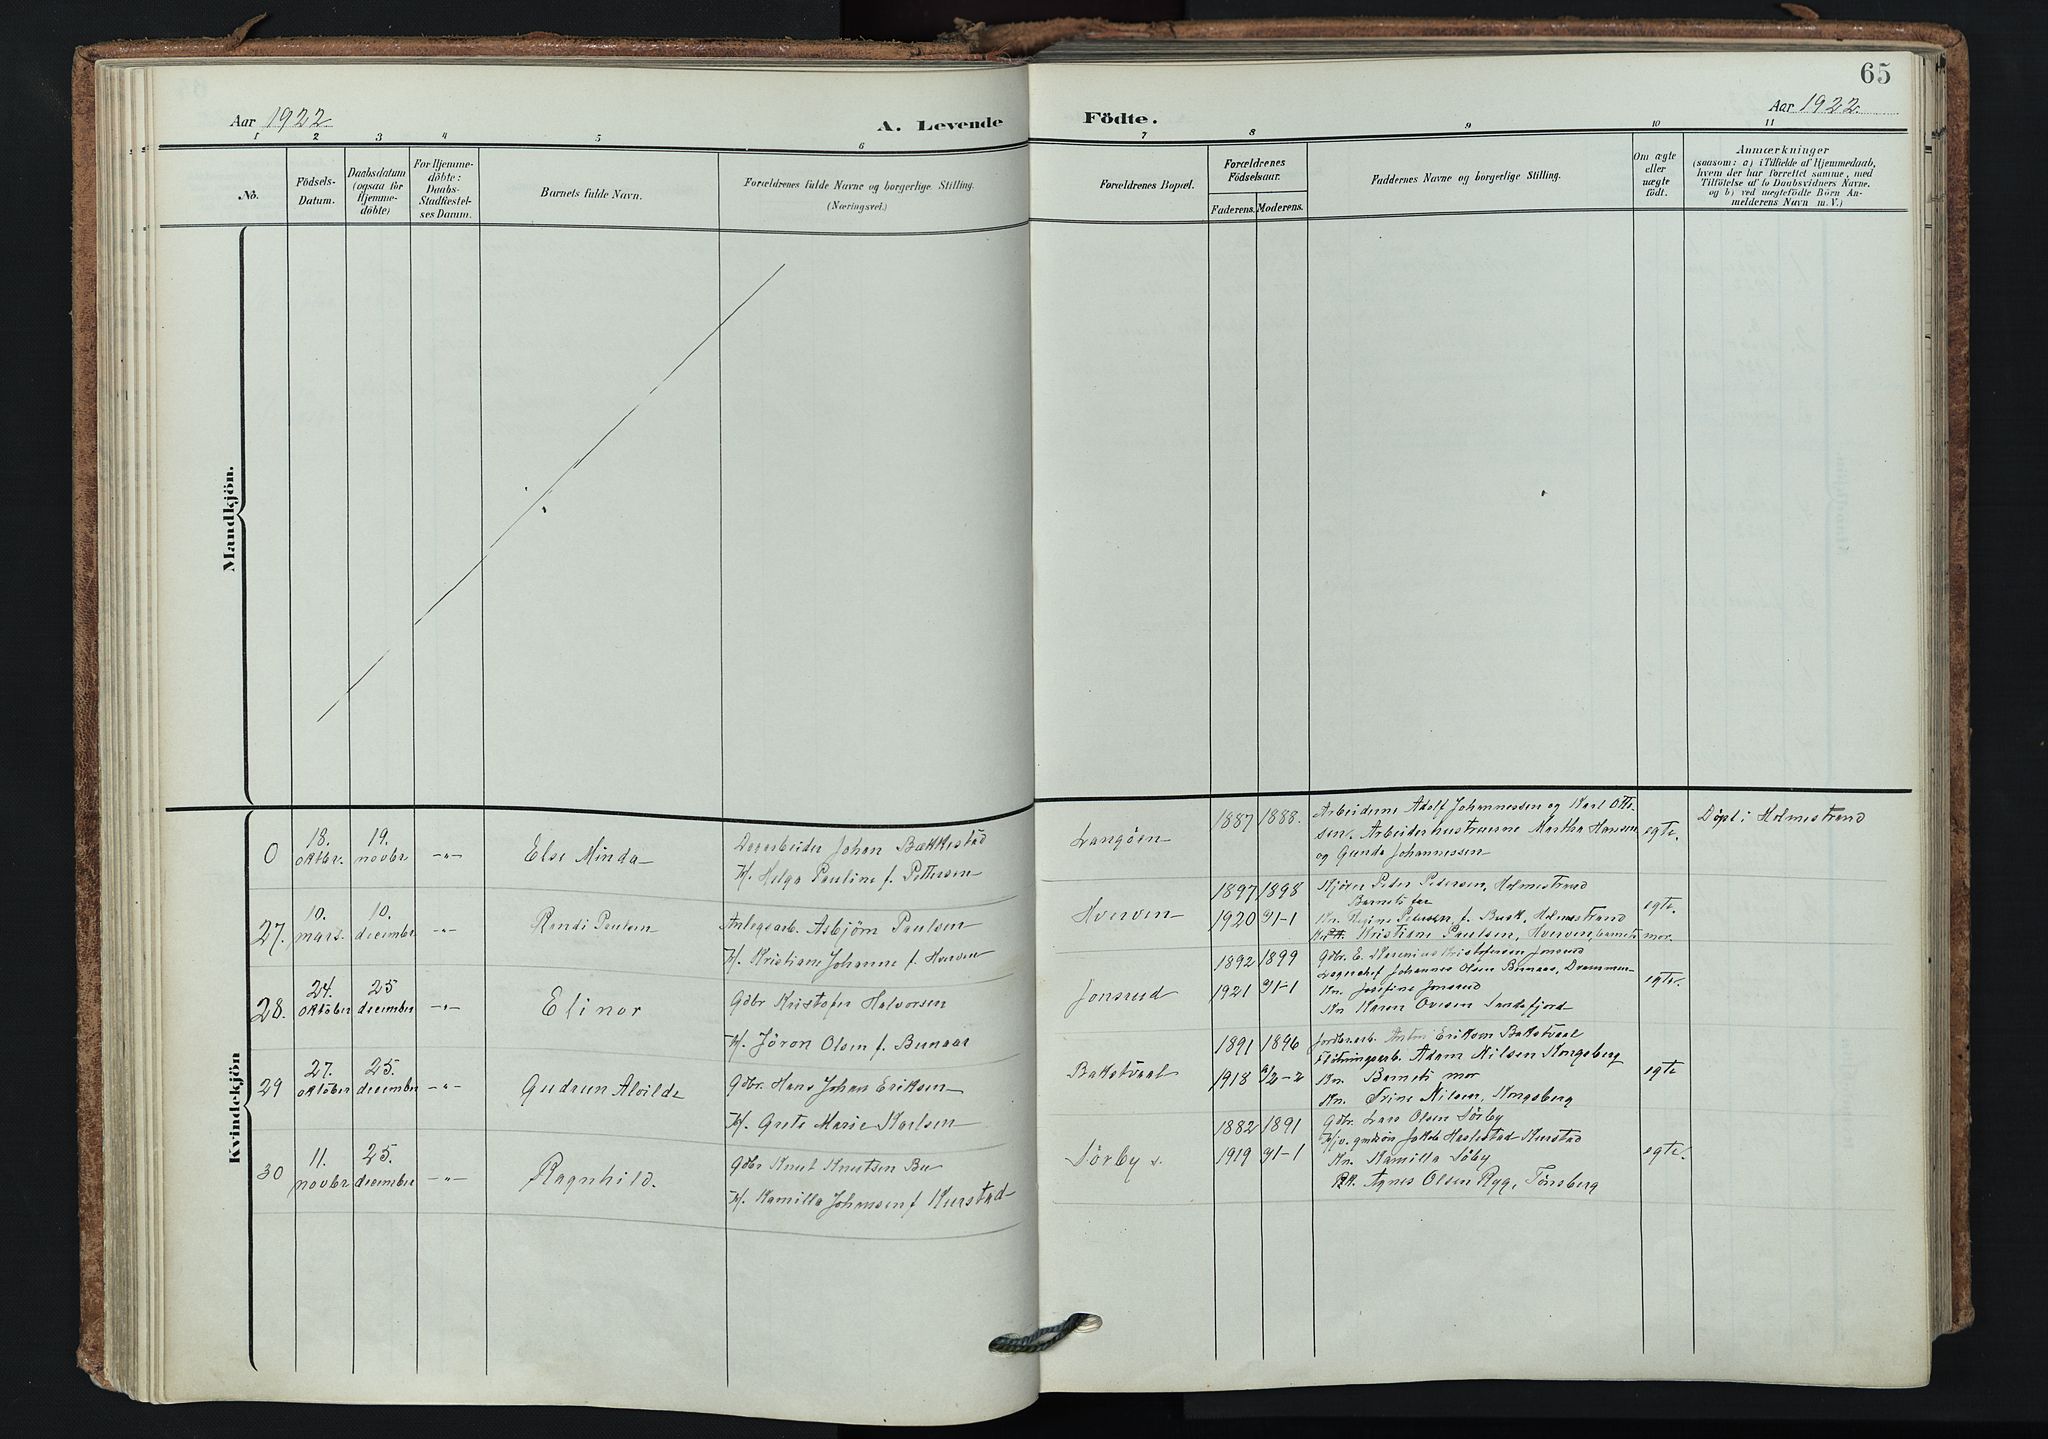 65
Aar 1922
A. Levende
Födte.
Aar 1922.
1 2 3 4 5 6 7 8 9 10 11
No.
Födsels-
Datum.
Daabsdatum
(ogsaa for
Hjemme-
döbte)
For Hjemme-
döbte:
Daabs-
Stadfæstel-
ses Datum.
Barnets fulde Navn.
Forældrenes fulde Navne og borgerlige Stilling.
(Næringsvei.)
Forældrenes Bopæl.
Forældrenes
Födselsaar.
Faderens.
Moderens.
Faddernes Navne og borgerlige Stilling.
Om ægte
eller
uægte
födt.
Anmærkninger
(saasom: a) i Tilfælde af Hjemmedaab,
hvem der har forrettet samme, med
Tilföielse af to Daabsvidners Navne,
og b) ved uægtefödte Börn An-
melderens Navn m. V.)
Mandkjön.
Kvindekjön
0
18.
oktbr.
19.
novbr
-"-
Else Minda
Johan Bækkestad
K. Helga Pauline f. Pettersen
Langøen
1887 1888.
Arbeiderne Adolf Johannessen og Karl Otte-
sen. Arbeiderhustruerne Martha Hansen
og Gunda Johannessen
egte.
Døpt i Holmestrand
27.
10.
mars.
10.
december
-"-
Randi Paulsen
Anlegsarb. Asbjørn Paulsen
K. Kristiane Johanne f. Hverven
Hverven
1897 1898
1920 91-1
Kjører Peder Pedersen, Holmestrand
Barnets far
Kn. Regine Pedersen, f. Busk, Holmestrand
Kristiane Paulsen, Hverven, barnets mor.
egte.
28.
24.
oktober
25
december
-"-
Elinor
Gdbr Kristofer Halvorsen
K. Jøron Olsen f. Bunaas
Jonsrud
1892 1899
1921 91-1
Gdbr. E. Kristofersen Jonsrud
Lagerchef Johannes Olsen Bunaas, Drammen
Kn. Josefine Jonsrud
Kn Karen Ovesen Sandefjord
egte.
29
27.
oktober
25.
december
-"-
Gudrun Alvilde
Gdbr. Hans Johan Eriksen
K. Grete Marie Karlsen
Bakstvaal
1891 1896
1918 92-2
Jordbrarb. Anton Eriksen Bakstvaal
Fløtningsarb. Adam Nilsen Kongsberg
Kn. Barnets mor
Kn. Trine Nilsen, Kongsberg
egte
30
11.
novbr
25.
december
-"-
Ragnhild.
Gdbr Knut Knutsen Bu
K. Kamilla Johansen f Kurstad
Sørby s.
1882 1891
1919 91-1
Gdbr. Lars Olsen Sørby
Jakob Haslestad Kurstad
Kn. Kamilla Søby
Pk. Agnes Olsen Rygg, Tønsberg
egte.